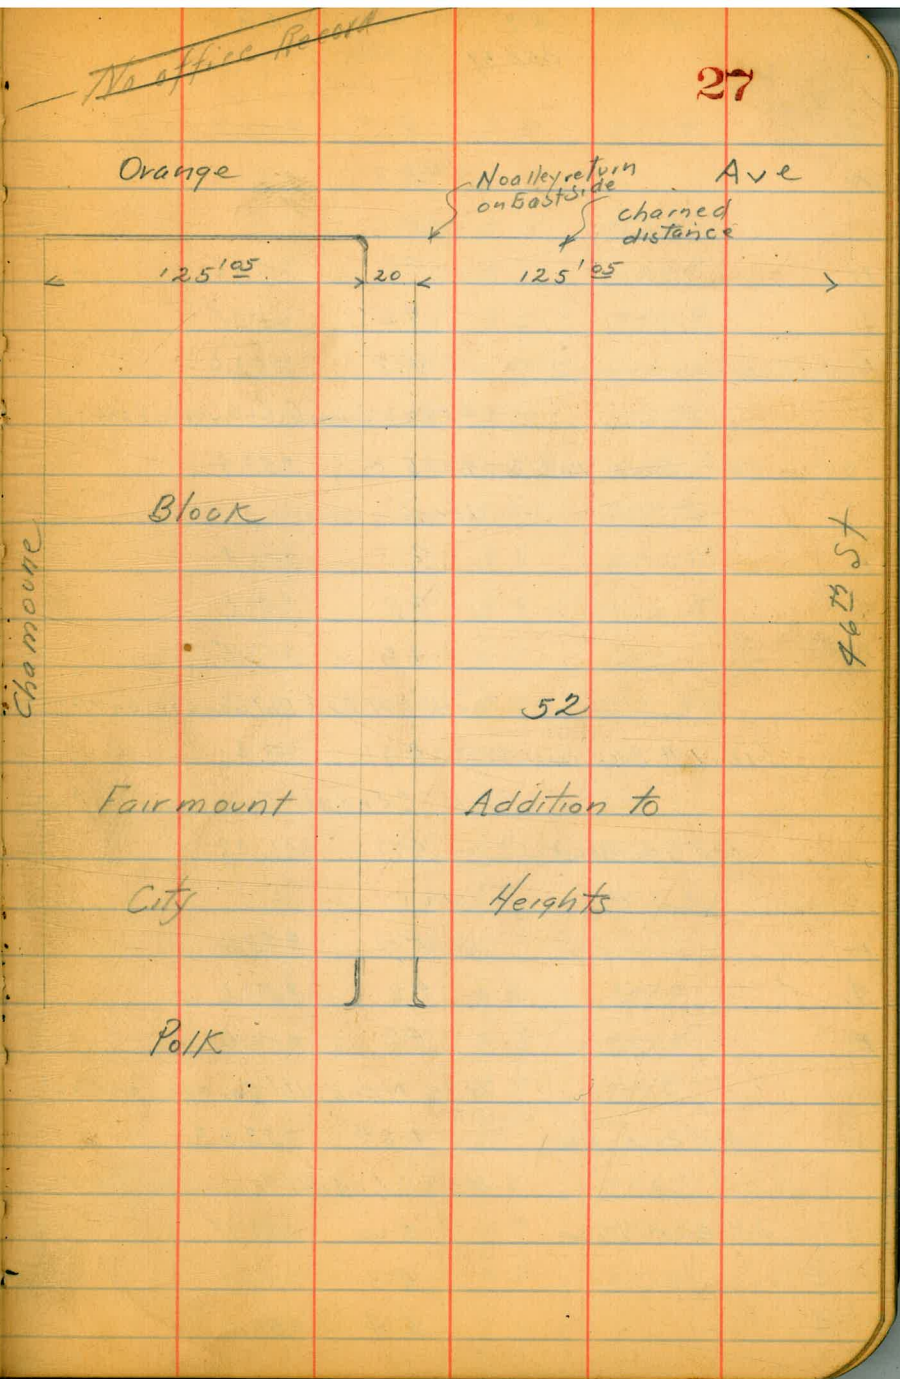 No office Record
27
Orange Ave
No alley return
on East side
chained
distance
125'05 20 125'05
Block
Chamoune
46th St
52
Fairmount Addition to
City Heights
Polk